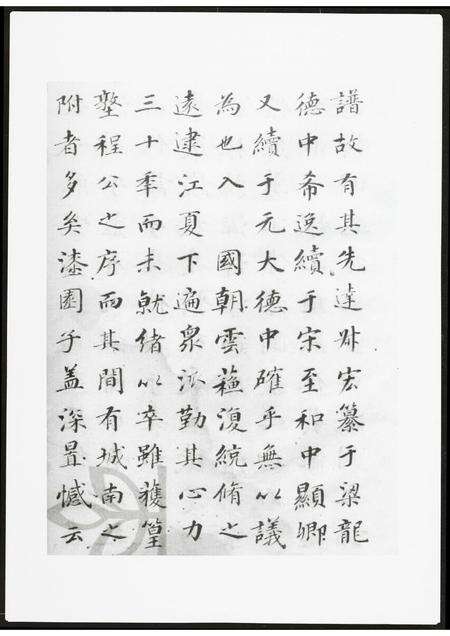 譜故有其先達宏纂于梁龍
德中希逸續于宋至和中顯卿
又續于元大德中確乎無以議
為也入 國朝雲復統脩之
遠逮江夏下遍衆派勤其心力
三十季而未就緒以卒雖獲篁
墪程公之序而其間有城南之
附者多矣漆園子盖深置憾云